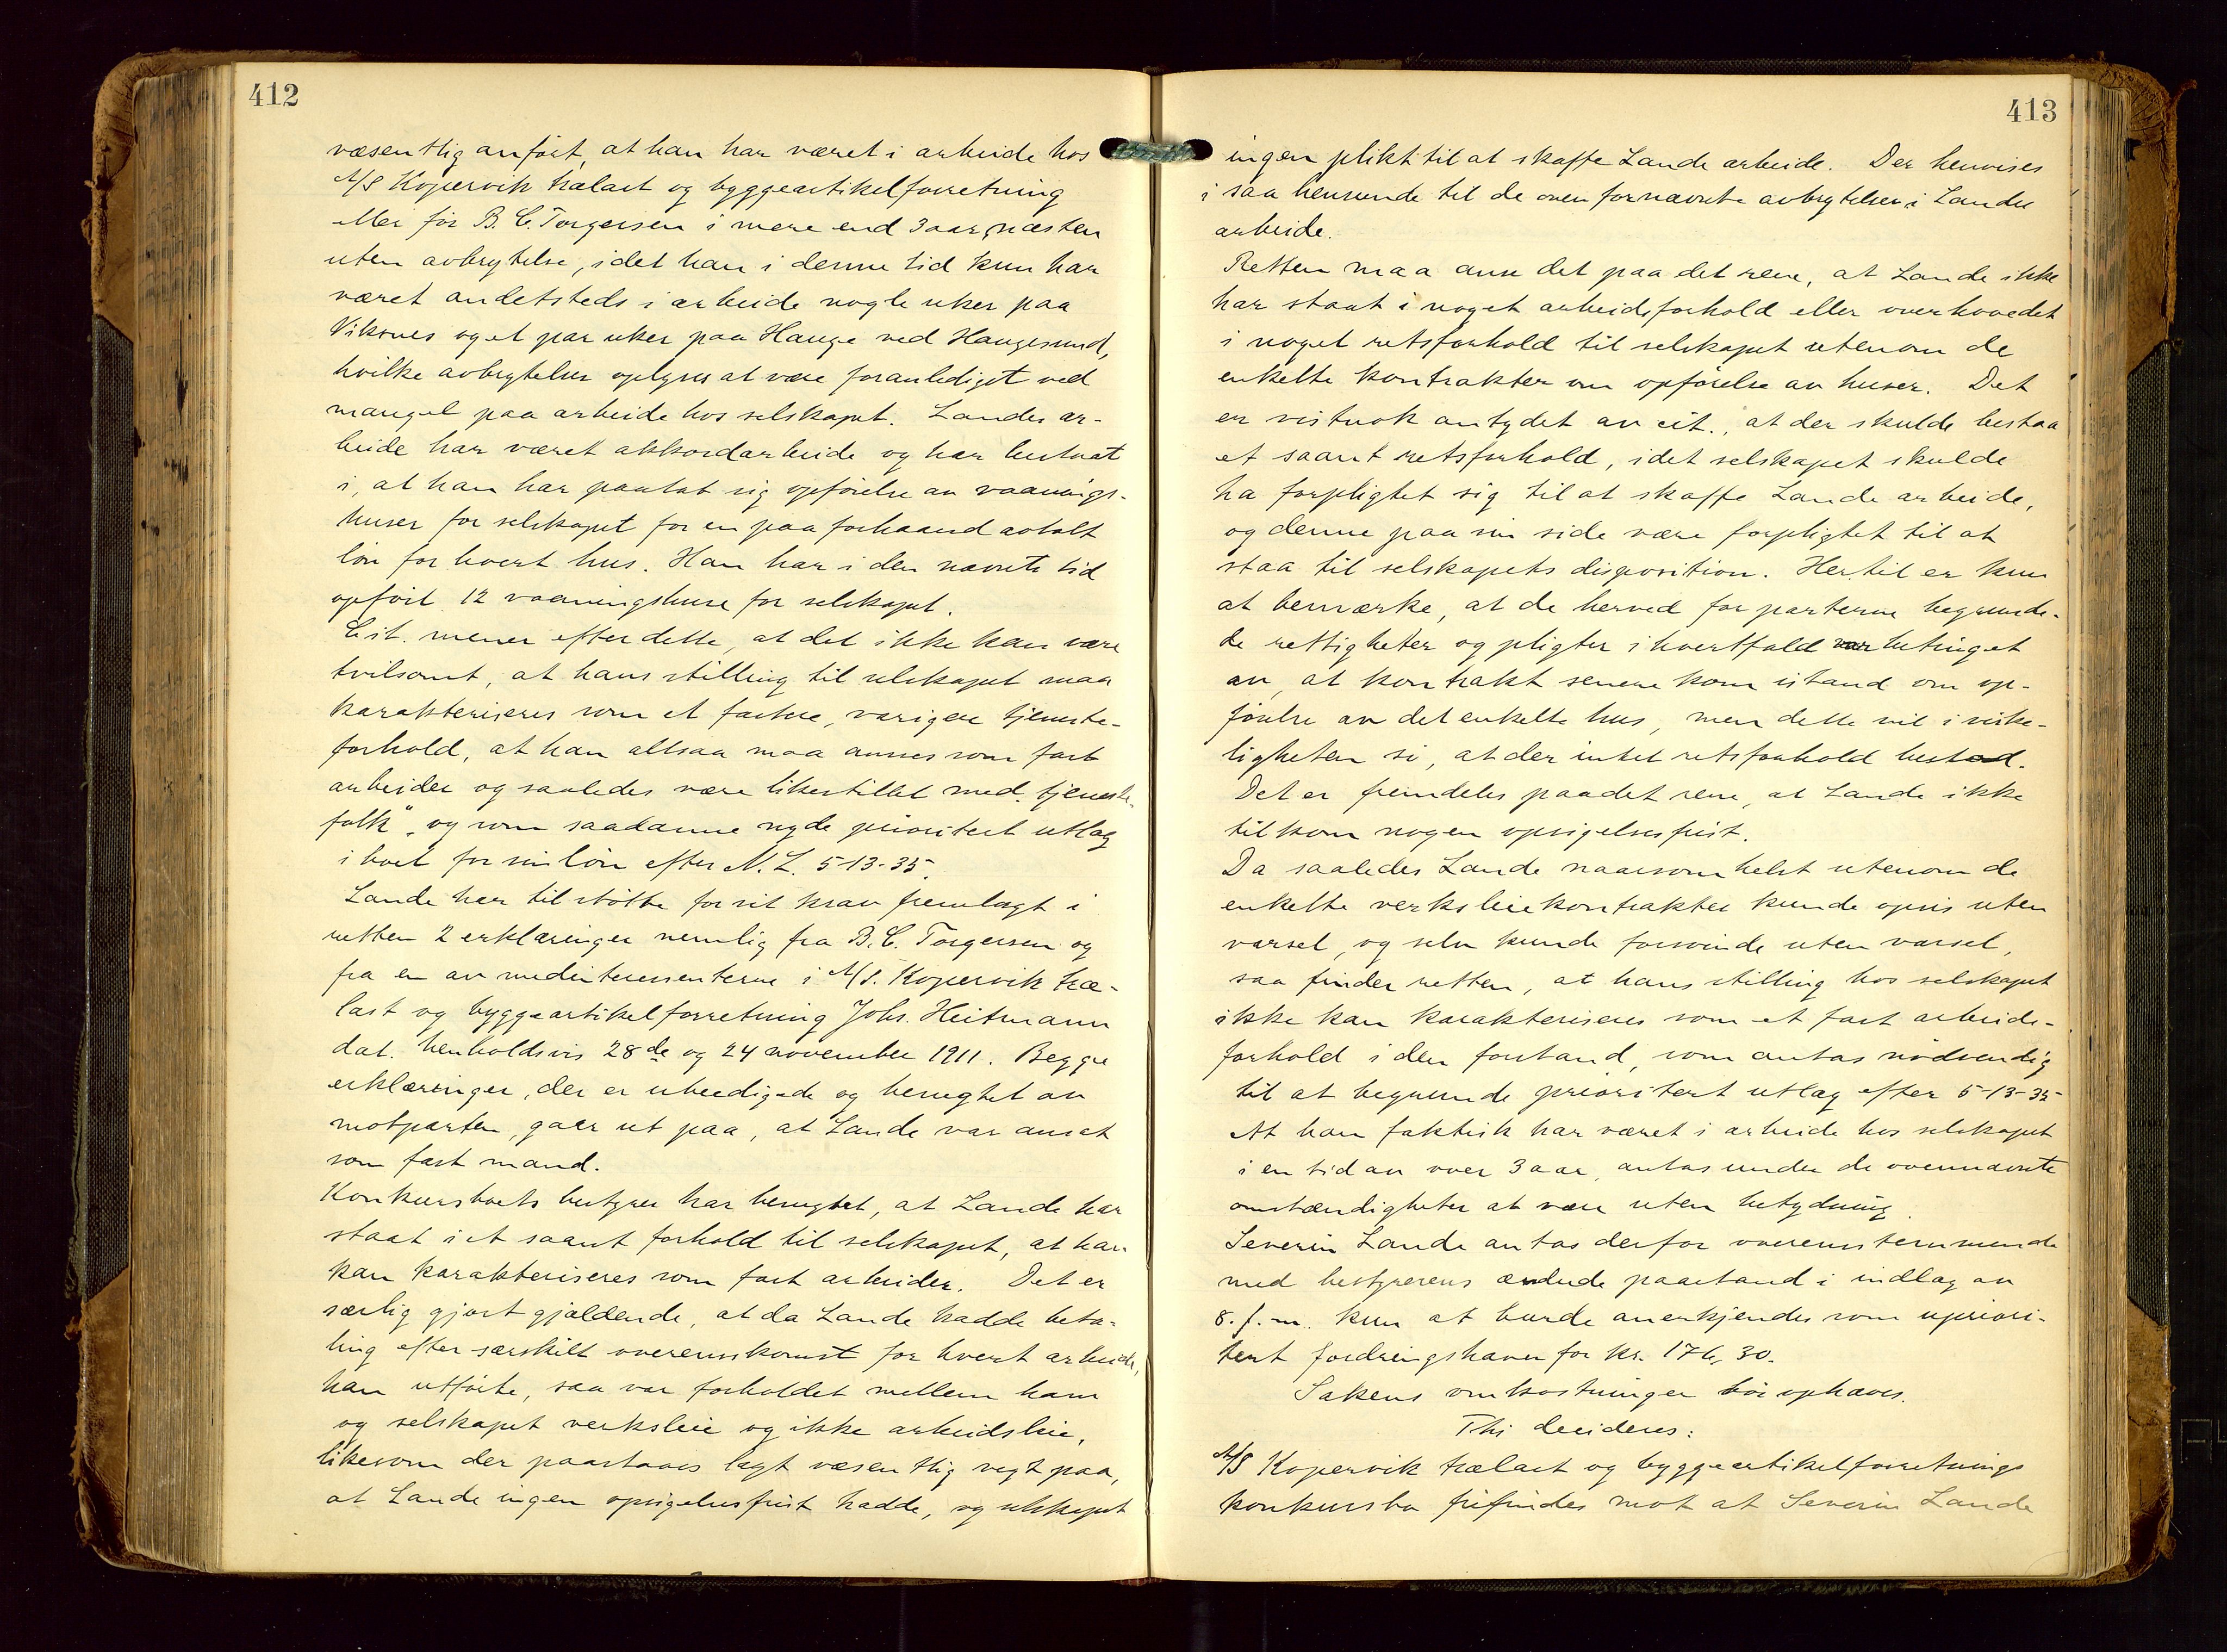 412
væsentlig anført, at han har været i arbeide hos
A/S Kopervik trælast og byggeartikelforretning
eller før B. C. Torgersen i mere end 3 aar, næsten
uten avbrytelse, idet han i denne tid kun har
været andetsteds i arbeide nogle uker paa
Viksnes og et par uker paa Hauge ved Haugesund,
hvilke avbrytelser oplyses at være foranlediget ved
mangel paa arbeide hos selskapet. Landes ar-
beide har været akkordarbeide og har bestaat
i, at han har paatat sig opførelse av vaanings-
huser for selskapet for en paa forhaand avtalt
løn for hvert hus. Han har i den nævnte tid
opført 12 vaaningshuse for selskapet.
Cit. mener efter dette, at det ikke kan være
tvilsomt, at hans stilling til selskapet maa
karakteriseres som et fastere, varigere tjeneste-
forhold, at han altsaa maa ansees som fast
arbeider og saaledes være likestillet med "tjeneste-
folk" og som saadanne nyde prioritert utlæg
i boet for sin løn efter N. L. 5-13-35.
Lande har til støtte for sit krav fremlagt i
retten 2 erklæringer nemlig fra B. C. Torgersen og
fra en av medinteressenterne i A/S. Kopervik træ-
last og byggeartikelforretning Johs. Heitmann
dat. henholdsvis 28de og 24 november 1911. Begge
erklæringer, der er ubeedigede og benegtet av
motparten, gaar ut paa, at Lande var ansat
som fast mand.
Konkursboets bestyrer har benegtet, at Lande har
staat i et saant forhold til selskapet, at han
kan karakteriseres som fast arbeider. Det er
særlig gjort gjældende, at da Lande hadde beta-
ling efter særskilt overenskomst for hvert arbeide,
han utførte, saa var forholdet mellem ham
og selskapet verksleie og ikke arbeidsleie,
likesom der paastaaes lagt væsentlig vegt paa,
at Lande ingen opsigelsesfrist hadde, og selskapet
413
ingen plikt til at skaffe Lande arbeide. Der henvises
i saa henseende til de ovenfornævnte avbrytelser i Landes
arbeide.
Retten maa anse det paa det rene, at Lande ikke
har staat i noget arbeidsforhold eller overhovedet
i noget retsforhold til selskapet utenom de
enkelte kontrakter om opførelse av huser. Det
er vistnok antydet av cit., at der skulde bestaa
et saant retsforhold, idet selskapet skulde
ha forpligtet sig til at skaffe Lande arbeide,
og denne paa sin side være forpligtet til at
staa til selskapets disposition. Hertil er kun
at bemærke, at de herved for parterne begrunde-
de rettigheter og pligter i hvertfald var betinget
av, at kontrakt senere kom istand om op-
førelse av det enkelte hus, men dette vil i virke-
ligheten si, at der intet retsforhold bestod.
Det er fremdeles paa det rene, at Lande ikke
tilkom nogen opsigelsesfrist.
Da saaledes Lande naarsomhelst utenom de
enkelte verksleiekontrakter kunde opsis uten
varsel, og selv kunde forsvinde uten varsel,
saa finder retten, at hans stilling hos selskapet
ikke kan karakteriseres som et fast arbeids-
forhold i den forstand, som antas nødvendig
til at begrunde prioritert utlæg efter 5-13-35
At han faktisk har været i arbeide hos selskapet
i en tid av over 3 aar, antas under de ovennævnte
omstændigheter at være uten betydning.
Severin Lande antas derfor overensstemmende
med bestyrerens ændrede paastand i indlæg av
8. f. m. kun at burde anerkjendes som upriori-
tert fordringshaver for kr. 176,30.
Sakens omkostninger bør ophæves.
Thi decideres:
A/S Kopervik trælast og byggeartikelforretnings
konkursbo frifindes mot at Severin Lande